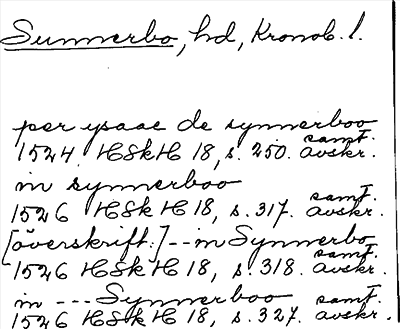 Sunnerbo, hd, Kronob. l.
per ysaac de synnerboo
1524 HSkH 18, s. 250. samt. avskr.
in synnerboo
1526 HSkH 18, s. 317. samt. avskr.
[överskrift:] -- in Synnerbo
1526 HSkH 18, s. 318. samt. avskr.
in --- Synnerboo
1526 HSkH 18, s. 327. samt. avskr.